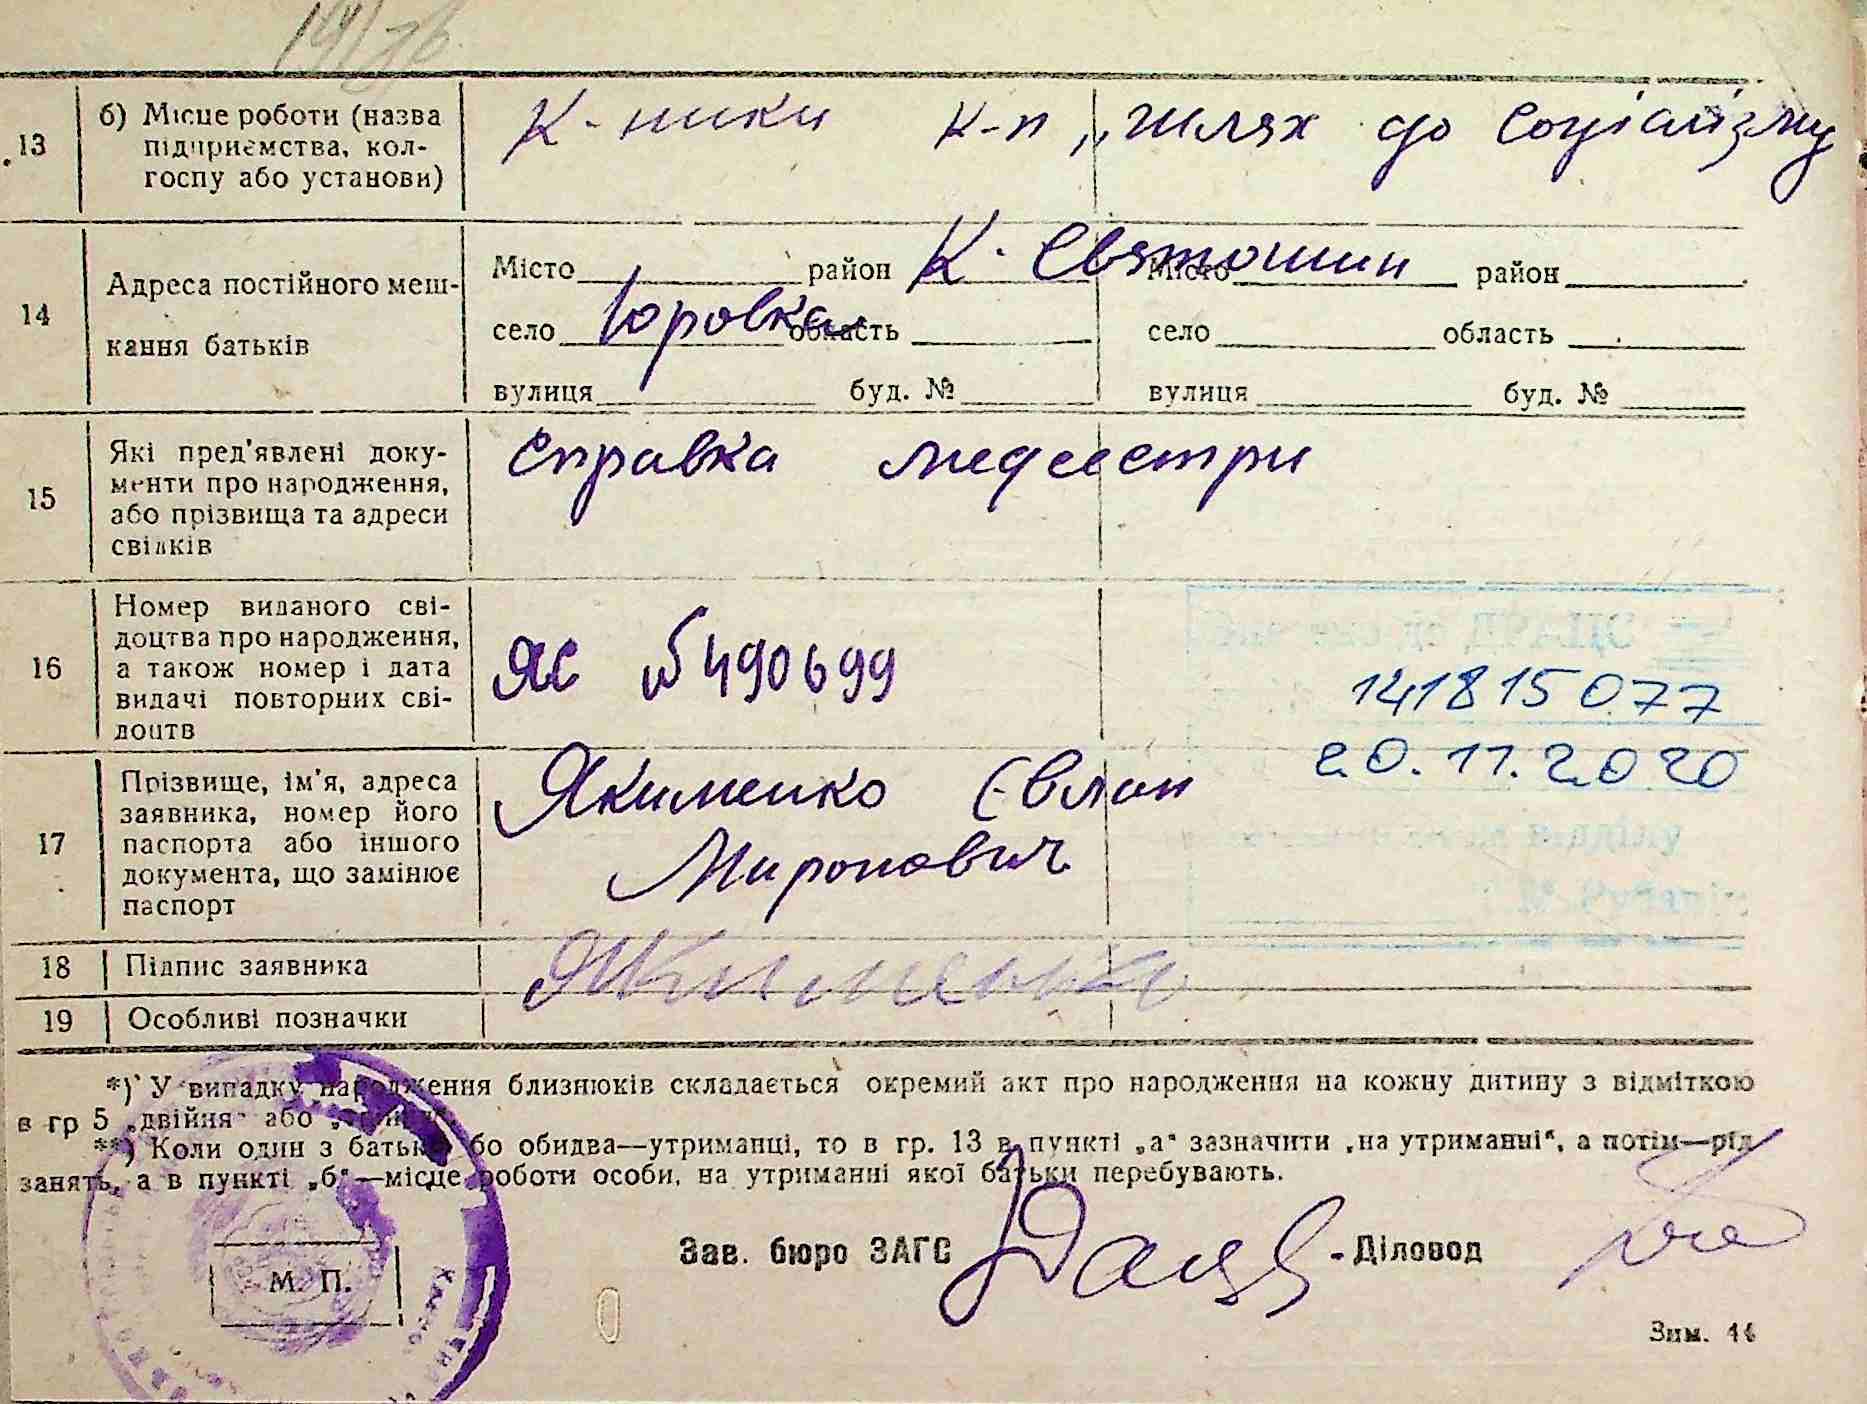 13
б) Місце роботи (назва
підприємства, кол-
госпу або установи)
К-ники к-п „шлях до Соціалізму
14
Адреса постійного меш-
кання батьків
Місто район К. Святошин Місто район
село Юровка область село область
вулиця буд. № вулиця буд. №
15
Які пред'явлені доку-
менти про народження,
або прізвища та адреси
свідків
Справка медсестри
16
Номер виданого сві-
доцтва про народження,
а також номер і дата
видачі повторних сві-
доцтв
ЯС № 490699
141815077
20.11.2020
17
Прізвище, ім'я, адреса
заявника, номер його
паспорта або іншого
документа, що замінює
паспорт
Якименко Євлан
Миронович
18 Підпис заявника
Якименко
19 Особливі позначки
*) У випадку народження близнюків складається окремий акт про народження на кожну дитину з відміткою
в гр 5 „двійня“ або
**) Коли один з батьків або обидва—утриманці, то в гр. 13 в пункті „а“ зазначити „на утриманні“, а потім—рід
занять, а в пункті „б“—місце роботи особи, на утриманні якої батьки перебувають.
Зав. бюро ЗАГС Діловод
М. П.
Зам. 44